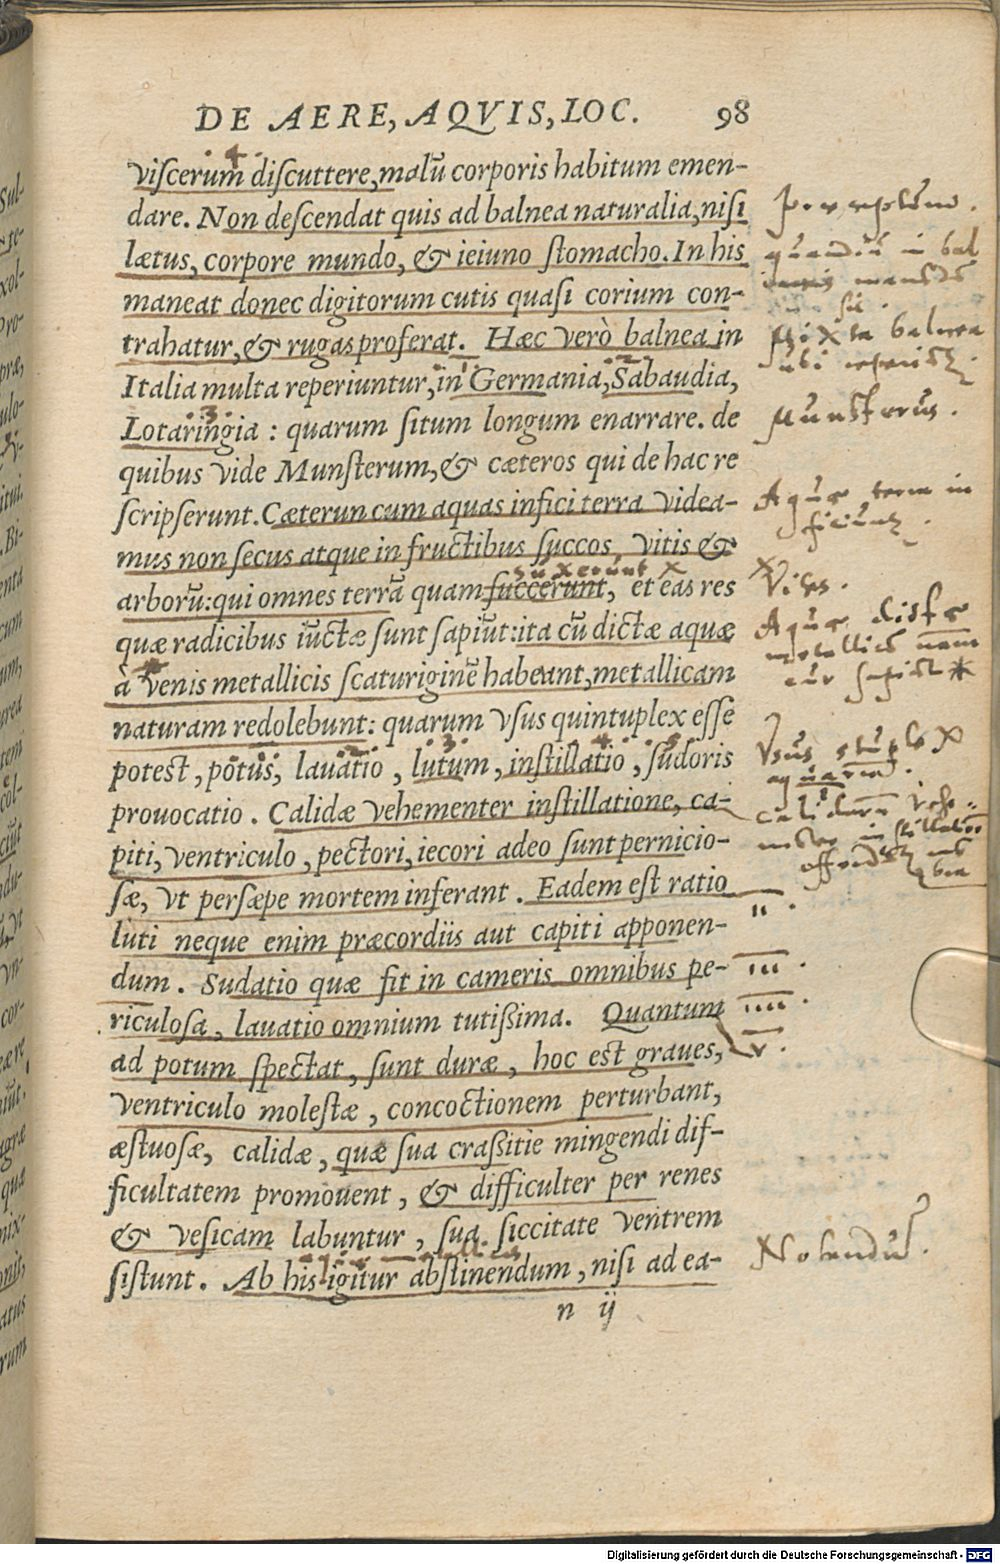 DE AERE, AQVIS, LOC. 98
viſcerum diſcuttere, malũ corporis habitum emen-
dare. Non deſcendat quis ad balnea naturalia, niſi
lætus, corpore mundo, & ieiuno ſtomacho. In his
maneat donec digitorum cutis quaſi corium con-
trahatur, & rugas proferat. Hæc verò balnea in
Italia multa reperiuntur, in Germania, Sabaudia,
Lotaringia : quarum ſitum longum enarrare. de
quibus vide Munſterum, & cæteros qui de hac re
ſcripſerunt. Cæterun cum aquas infici terra videa-
mus non ſecus atque in fructibus ſuccos, vitis &
suxerunt x
arborũ: qui omnes terrã quam ſuccerunt, et eas res
quæ radicibus iũctæ ſunt ſapiũt: ita cũ dictæ aquæ
à venis metallicis ſcaturiginẽ habeant, metallicam
naturam redolebunt: quarum vſus quintuplex eſſe
poteſt, potus, lauatio, lutum, inſtillatio, ſudoris
prouocatio. Calidæ vehementer inſtillatione, ca-
piti, ventriculo, pectori, iecori adeo ſunt pernicio-
ſæ, vt perſæpe mortem inferant. Eadem eſt ratio
luti neque enim præcordiis aut capiti apponen-
dum. Sudatio quæ fit in cameris omnibus pe-
riculoſa, lauatio omnium tutißima. Quantum
ad potum ſpectat, ſunt duræ, hoc eſt graues,
ventriculo moleſtæ, concoctionem perturbant,
æſtuoſæ, calidæ, quæ ſua craßitie mingendi dif-
ficultatem promouent, & difficulter per renes
& veſicam labuntur, ſua ſiccitate ventrem
ſiſtunt. Ab his igitur abſtinendum, niſi ad ea-
n ij
quandiũ in bal
Mixta balnea
Munsterus.
Aquæ terra in
x Vites.
Aquæ dictæ
ii.
iii.
iiii.
v.
Notandũ.
Digitalisierung gefördert durch die Deutsche Forschungsgemeinschaft - DFG